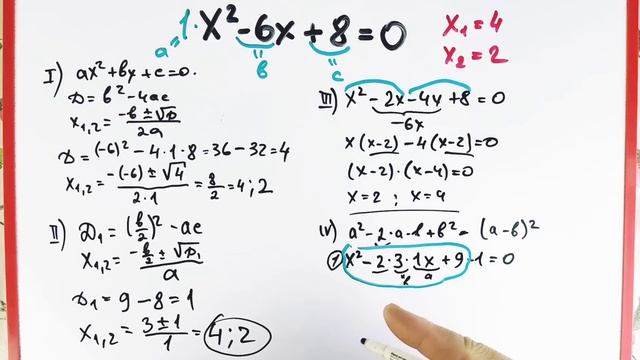 1·x² - 6x + 8 = 0
a = b = c
x₁ = 4
x₂ = 2
I) ax² + bx + c = 0.
D = b² - 4ac
x₁,₂ = (-b ± √D) / 2a
D = (-6)² - 4·1·8 = 36 - 32 = 4
x₁,₂ = (-(-6) ± √4) / (2·1) = 8/2 = 4 ; 2
II) D₁ = (b/2)² - ac
x₁,₂ = (-b/2 ± √D₁) / a
D₁ = 9 - 8 = 1
x₁,₂ = (3 ± 1) / 1 = 4 ; 2
III) x² - 2x - 4x + 8 = 0
-6x
x(x-2) - 4(x-2) = 0
(x-2)·(x-4) = 0
x = 2 ; x = 4
IV) a² - 2·a·b + b² = (a-b)²
1) x² - 2·3·1x + 9 - 1 = 0
b a